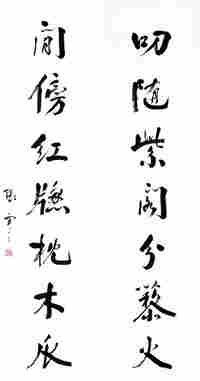 叨随紫阁分藜火
闲傍红牕枕木瓜